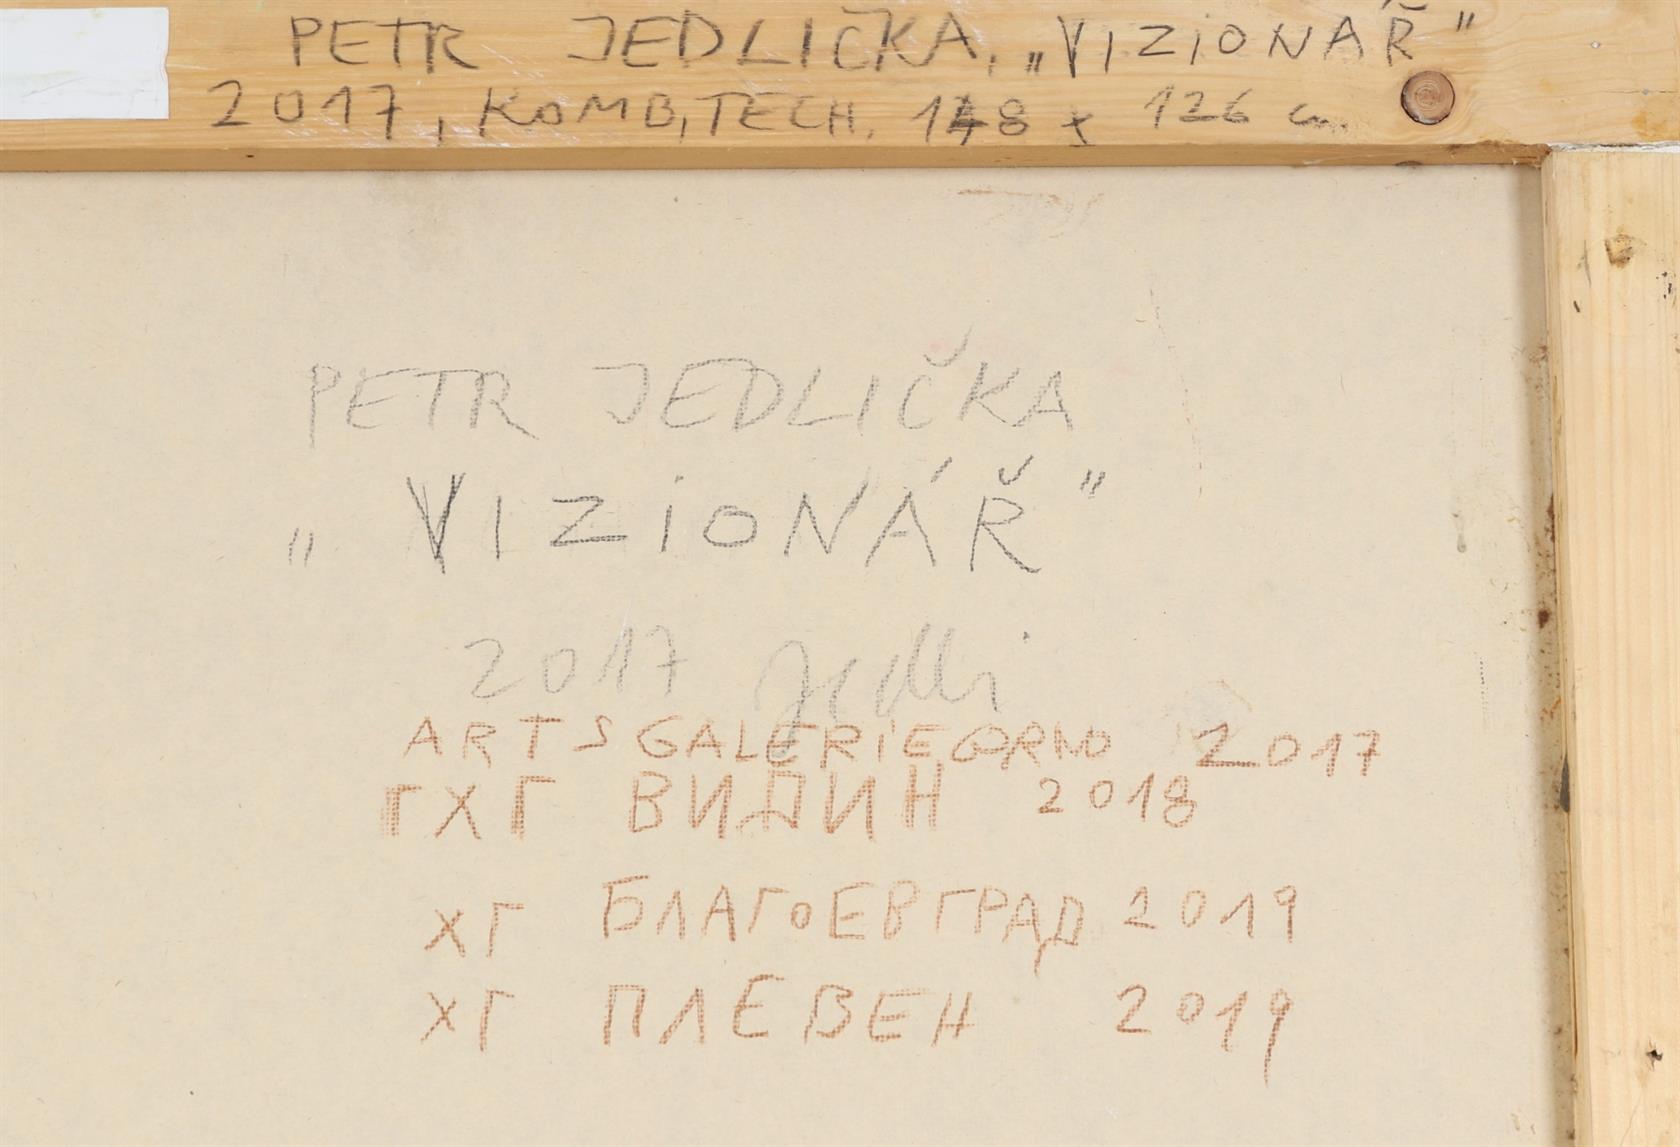 PETR JEDLIČKA, „VIZIONÁŘ"
2017, KOMB, TECH. 148 x 126 cm.
PETR JEDLIČKA
„VIZIONÁŘ"
2017 Jedli
ARTSGALERIE 2017
ГХГ ВИДИН 2018
ХГ БЛАГОЕВГРАД 2019
ХГ ПЛЕВЕН 2019